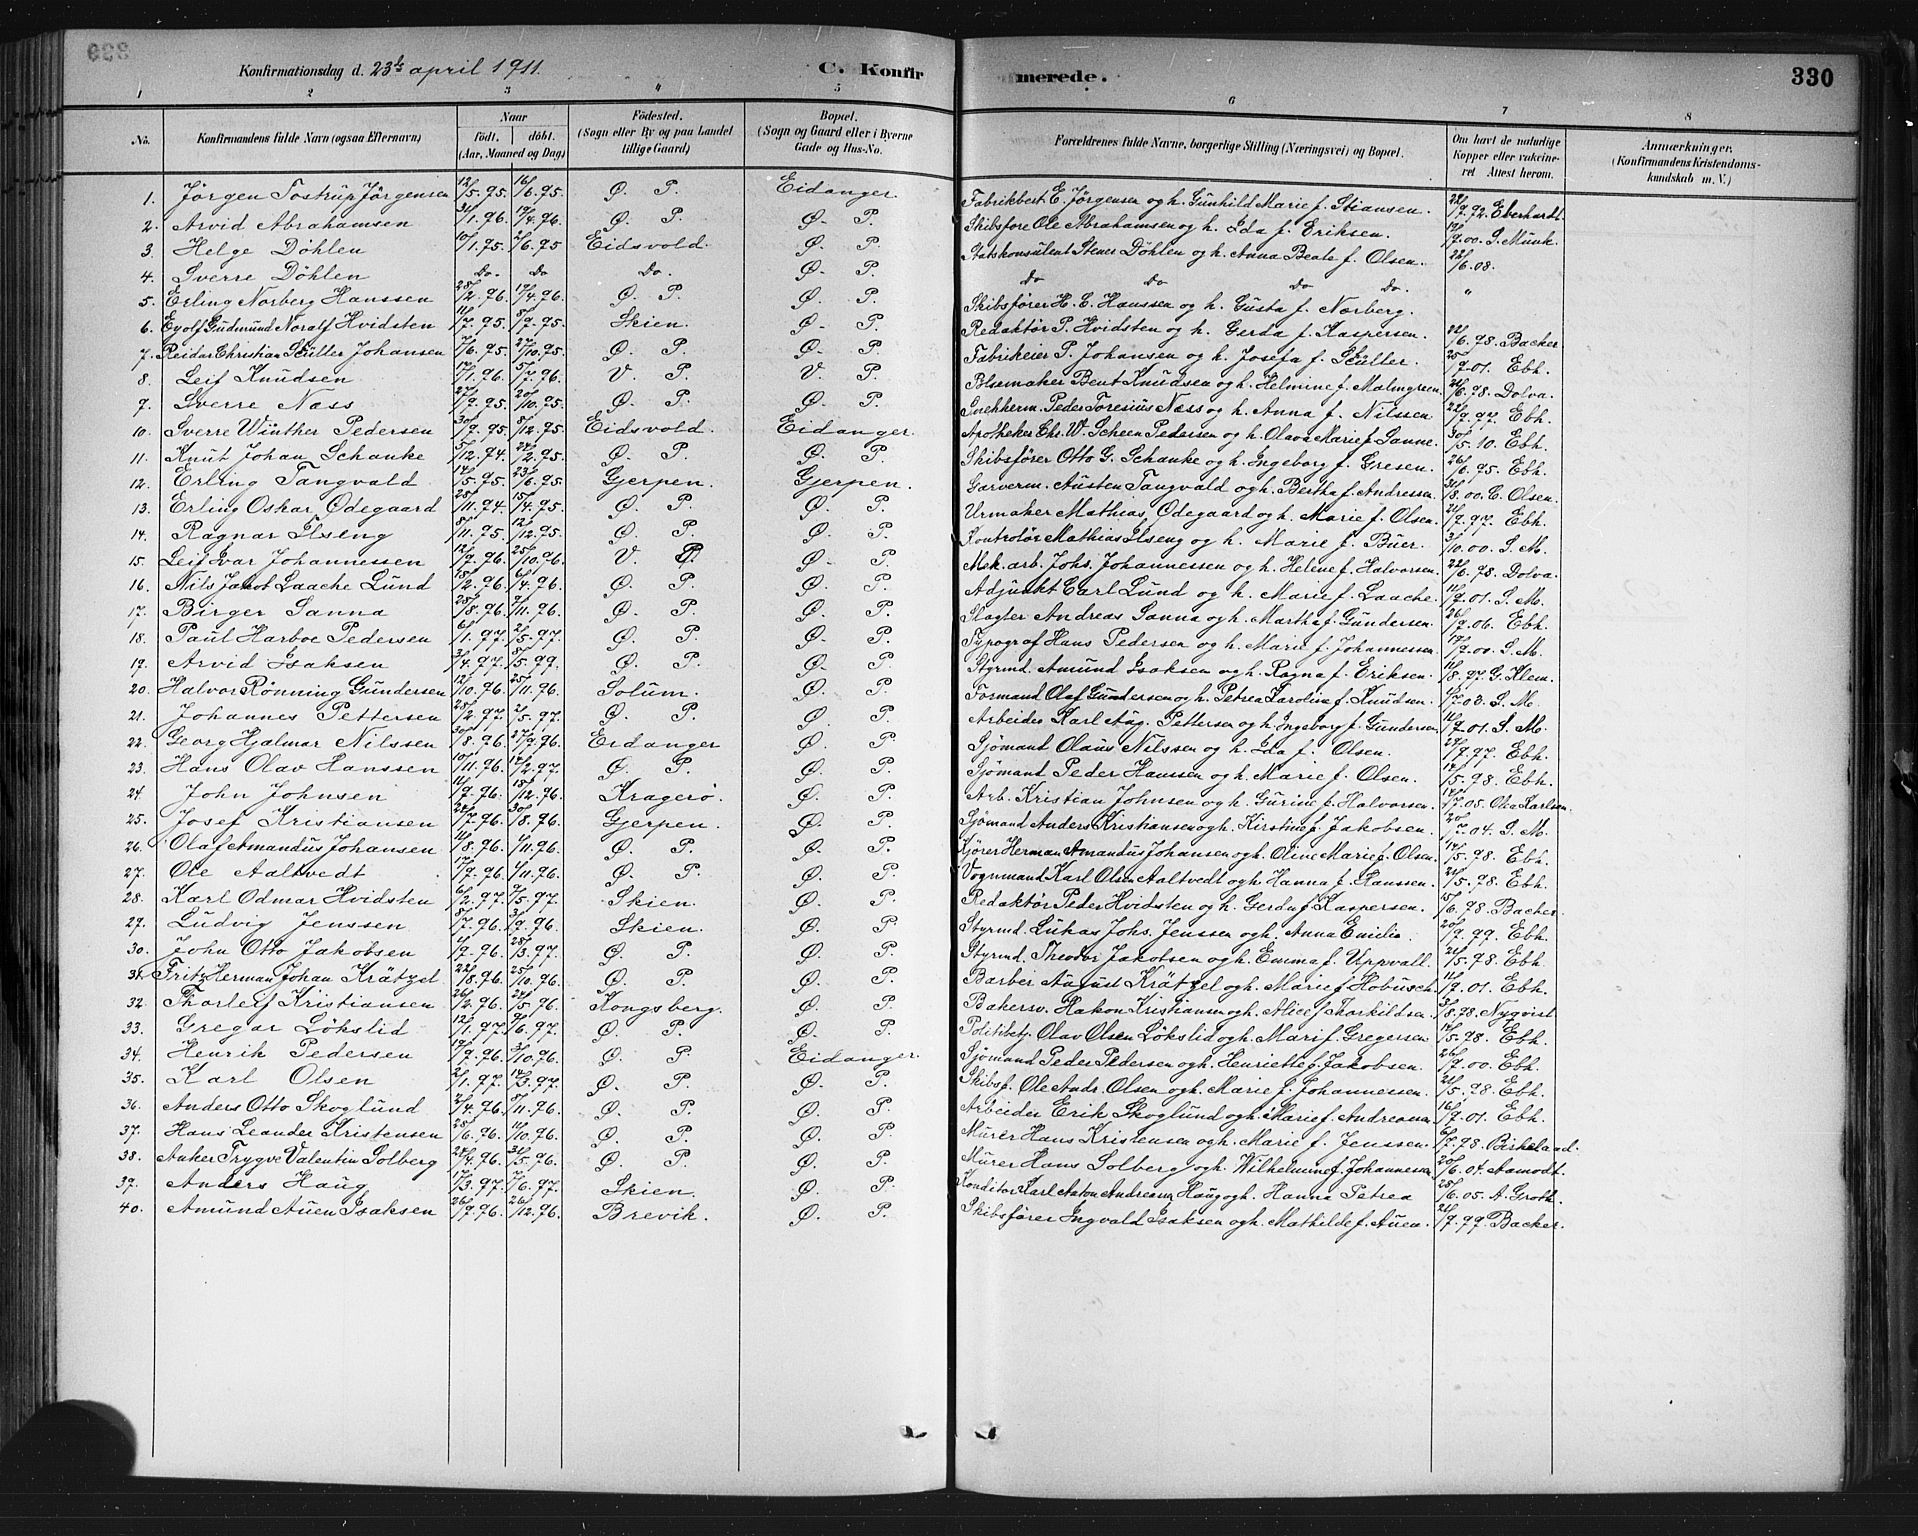 Konfirmationsdag d. 23de april 1911. C. Konfirmerede. 330
1 2 3 4 5 6 7 8
No. Konfirmandens fulde Navn (ogsaa Efternavn) Naar födt. döbt. (Aar, Maaned og Dag) Födested. (Sogn eller By og paa Landet tillige Gaard) Bopæl. (Sogn og Gaard eller i Byerne Gade og Hus-No. Forældrenes fulde Navne, borgerlige Stilling (Næringsvei) og Bopæl. Om havt de naturlige Kopper eller vakcineret Attest herom. Anmærkninger. (Konfirmandens Kristendomskundskab m. V.)
1. Jørgen Tostrup Jörgensen 12/5.95. 16/6.95. Ø. P. Eidanger. Fabrikbest. E. Jörgensen og h. Gunhild Marie f. Stiansen. 22/9.92. Eberhardt
2. Arvid Abrahamsen 31/1.96. 19/4.96. Ø. P. Ø. P. Skibsføre Ole Abrahamsen og h. Ida f. Eriksen. 19/9.00. S. Munk.
3. Helge Döhlen 10/1.95. 2/6.95 Eidsvold. Ø. P. Statskonsulent Stener Döhlen og h. Anna Beate f. Olsen. 22/6.08.
4. Sverre Döhlen Do Do Do. Ø. P. Do Do Do Do. "
5. Erling Norberg Hanssen 28/2.96. 19/4.96. Ø. P. Ø. P. Skibsfører H. E. Hanssen og h. Gusta f. Norberg.
6. Eyolf Gudmund Noralf Hvidsten 11/7.95. 8/9.95. Skien. Ø. P. Redaktør P. Hvidsten og h. Gerda f. Kaspersen. 22/6.98. Backer
7. Reidar Christian Stüller Johansen 7/6.95. 27/10.95. Ø. P. Ø. P. Fabrikeier P. Johansen og h. Josefa f. Stüller. 25/9.01. Ebh.
8. Leif Knudsen 17/1.96. 5/7.96. V. P. V. P. Pölsemaker Bent Knudsen og h. Helmine f. Malmgren. 21/6.98. Dolva.
9. Sverre Næss 27/9.95. 20/10.95. Ø. P. Ø. P. Snekkerm. Peder Toresius Næss og h. Anna f. Nilssen 22/9.97. Ebh.
10. Sverre Winther Pedersen 30/9.95. 8/12.95. Eidsvold. Eidanger. Apotheker Chr. W. Scheen Pedersen og h. Olava Marie f. Sanne. 30/5.10. Ebh.
11. Knut Johan Schanke 5/12.94. 24/2.95. Ø. P. Ø. P. Skibsfører Otto G. Schanke og h. Ingeborg f. Gresen. 26/6.95. Ebh.
12. Erling Tangvald 14/5.95. 23/6.95 Gjerpen. Gjerpen. Garverm. Austen Tangvald og h. Bertha f. Andressen. 31/8.00. C. Olsen.
13. Erling Oskar Ødegaard 25/11.94. 15/4.95. Ø. P. Ø. P. Urmaker Mathias Odegaard og h. Marie f. Olsen. 21/9.97. Ebh.
14. Ragnar Ilseng 8/11.95. 12/12.95. Ø. P. Ø. P. Kontrolör Mathias Ilseng og h. Marie f. Büer. 3/10.00. S. M.
15. Leif Ivar Johannessen 12/9.96. 25/10.96. V. P. Ø. P. Mek. arb. Johs. Johannessen og h. Helene f. Halvorsen. 22/6.98. Dolva.
16. Nils Jakob Laache Lund 18/2.96. 6/4.96. Ø. P. Ø. P. Adjunkt Carl Lund og h. Marie f. Laache. 11/9.01. S. M.
17. Birger Sanna 28/8.96. 9/11.96. Ø. P. Ø. P. Slagter Andreas Sanna og h. Martha f. Gundersen. 26/9.06. Ebh.
18. Paul Harboe Pedersen 6/1.97. 2/5.97. Ø. P. Ø. P. Typograf Hans Pedersen og h. Marie f. Johannessen 17/9.00. S. M.
19. Arvid Isaksen 3/4.97. 8/5.99. Ø. P. Ø. P. Styrmd. Amund Isaksen og h. Ragna f. Eriksen. 11/8.97. G. Klem.
20. Halvor Rønning Gundersen 12/10.96. 25/11.96. Solum. Ø. P. Formand Olaf Gundersen og h. Petrea Karoline f. Knudsen. 1/7.03. S. M.
21. Johannes Pettersen 28/2.97. 2/5.97. Ø. P. Ø. P. Arbeider Karl Aug. Pettersen og h. Ingeborg f. Gundersen. 11/9.01. S. M.
22. Georg Hjalmar Nilssen 30/8.96. 27/9.96. Eidanger Ø. P. Sjömand Olaus Nilssen og h. Ida f. Olsen. 27/9.97. Ebh.
23. Hans Olav Hanssen 10/11.96. 14/2.97. Ø. P. Ø. P. Sjömand Peder Hanssen og h. Marie f. Olsen. 14/5.98. Ebh.
24. John Johnsen 11/9.96. 18/12.96. Kragerö. Ø. P. Arb. Kristian Johnsen og h. Gurine f. Halvorsen. 14/7.05. Olva Karlsen.
25. Josef Kristiansen 24/7.96. 30/8.96. Gjerpen. Ø. P. Sjømand Anders Kristiansen og h. Kirstine f. Jakobsen. 20/7.04. S. M.
26. Olaf Amandus Johansen 11/8.96. 1/11.96. Ø. P. Ø. P. Kjörer Herman Amandus Johansen og h. Oline Marie f. Olsen. 14/5.98. Ebh.
27. Ole Aaltvedt 17/9.96. 1/11.96. Ø. P. Ø. P. Vognmand Karl Olsen Aaltvedt og h. Hanna f. Hanssen. 21/5.98. Ebh.
28. Karl Odmar Hvidsten 6/2.97. 9/5.97. Skien. Ø. P. Redaktør Peder Hvidsten og h. Gerda f. Kaspersen. 15/6.98. Backer.
29. Ludvig Jenssen 8/7.96. 3/9.96. Skien. Ø. P. Styrmd. Lukas Johs. Jenssen og h. Anna Emilie. 20/9.99. Ebh.
30. John Otto Jakobsen 4/9.96. 28/3.97. Ø. P. Ø. P. Styrmd. Theodor Jakobsen og h. Emma f. Uppvall. 21/5.98. Ebh.
31. Fritz Herman Johan Krätzel 22/8.96. 25/10.96. Ø. P. Ø. P. Barber August Krätzel og h. Marie f. Hobusch. 11/9.01. Ebh.
32. Thorleif Kristiansen 26/2.96. 24/5.96. Kongsberg. Ø. P. Bakersv. Hakon Kristiansen og h. Alice f. Thorkildsen. 3/8.98. Nyqvist
33. Gregar Lökslid 12/1.97. 9/6.97. Ø. P. Ø. P. Politibetj. Olav Olsen Lökslid og h. Mari f. Gregersen. 14/5.98. Ebh.
34. Henrik Pedersen 19/9.96. 31/10.96. Ø. P. Eidanger. Sjömand Peder Pedersen og h. Henriette f. Jakobsen. 26/9.00. Ebh.
35. Karl Olsen 2/1.97. 14/3.97. Ø. P. Ø. P. Skibsf. Ole Andr. Olsen og h. Marie f. Johannessen. 21/5.98. Ebh.
36. Anders Otto Skoglund 2/4.96. 8/11.96. Ø. P. Ø. P. Arbeider Erik Skoglund og h. Marie f. Andreasen 16/9.01. Ebh.
37. Hans Leander Kristensen 28/6.96. 11/10.96. Ø. P. Ø. P. Murer Hans Kristensen og h. Marie f. Jenssen. 6/7.98. Birkeland.
38. Anker Trygve Valentin Solberg 24/4.96. 31/5.96. Ø. P. Ø. P. Murer Hans Solberg og h. Wilhelmine f. Johannesen 20/6.04. Aamodt.
39. Anders Haug 17/3.97. 7/6.97. Skien. Ø. P. Konditor Karl Anton Andreasen Haug og h. Hanna Petrea 28/6.05. A. Groth.
40. Amund Auen Isaksen 26/9.96. 26/12.96. Brevik. Ø. P. Skibsfører Ingvald Isaksen og h. Mathilde f. Auen. 21/9.99. Backer.